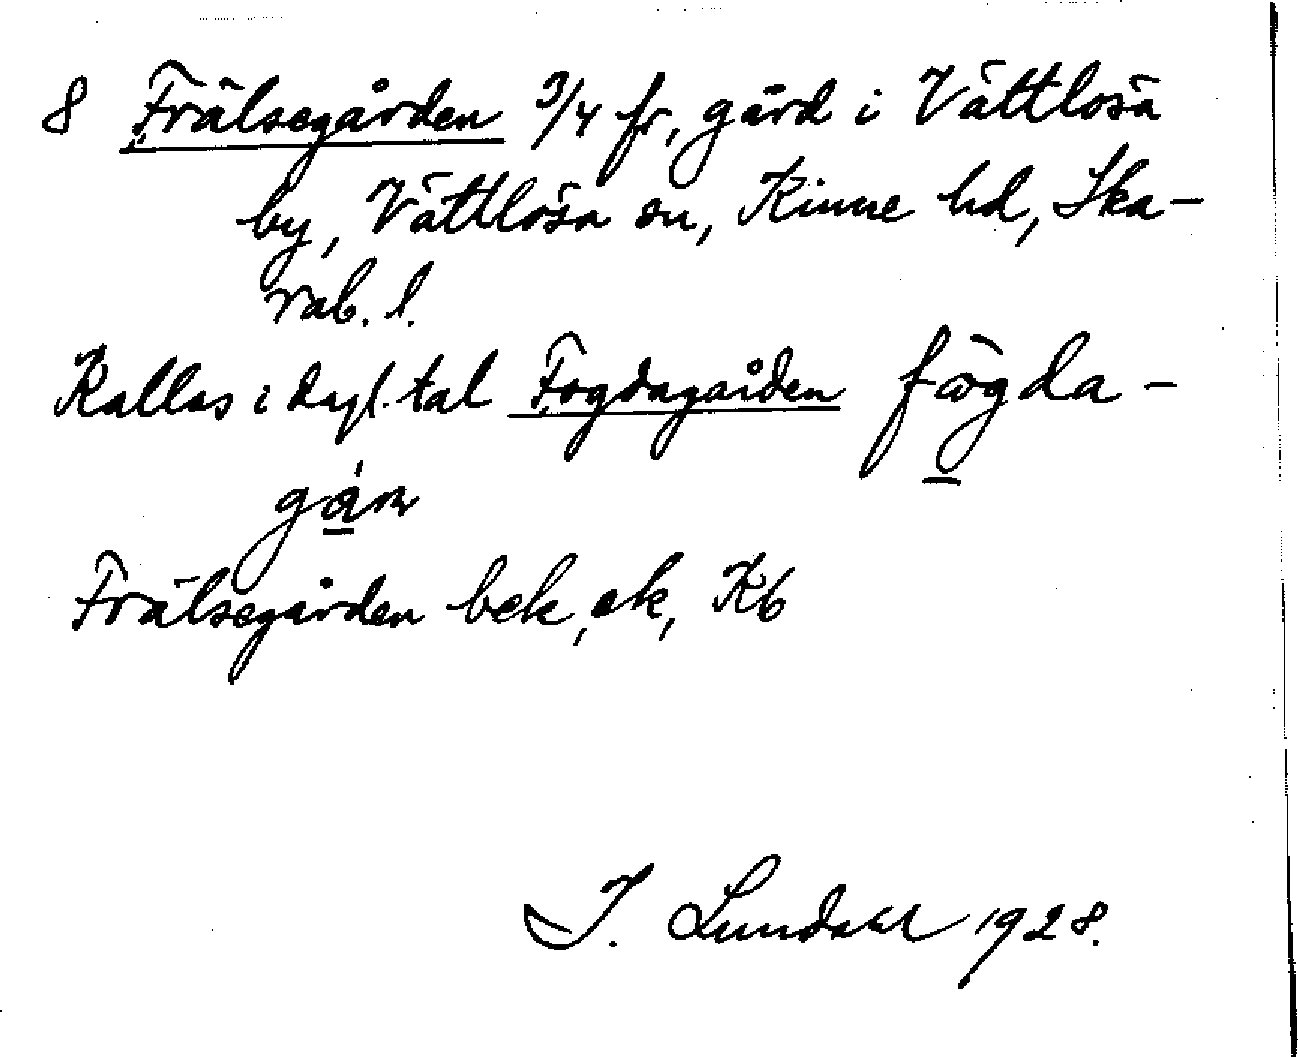 8 Frälsegården 3/4 fr, gård i Vättlösa
by, Vättlösa sn, Kinne hd, Ska-
rab. l.
Kallas i dagl. tal Fogdagården fögda-
gán
Frälsegården bek, ek, Kb
I. Lundahl 1928.